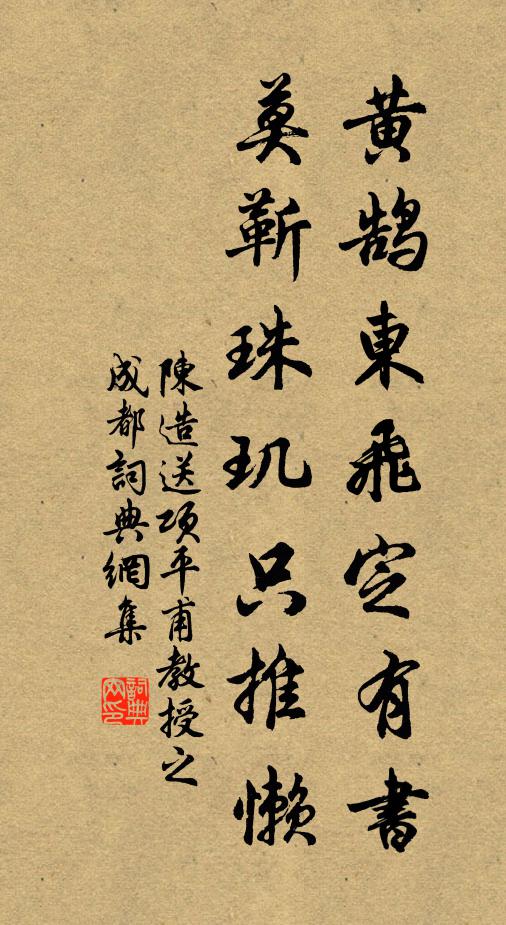 黄鹄東飛定有書
莫靳珠玑只推懒
陳造送项平甫教授之
成都詞典網集
詞典网印